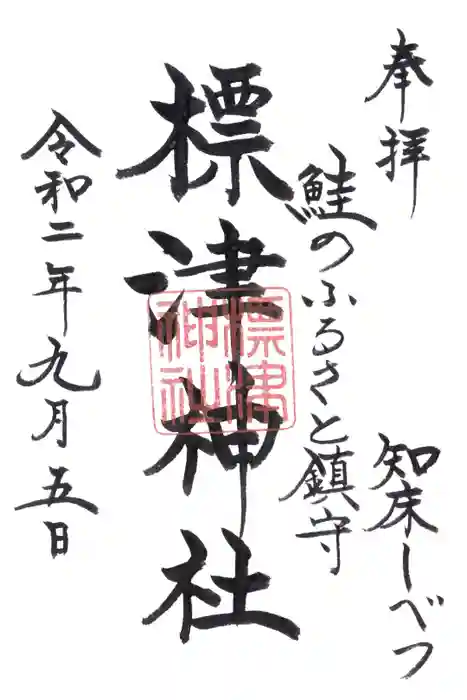 奉拝
知床しべつ
鮭のふるさと鎮守
標津神社
標津神社
令和二年九月五日